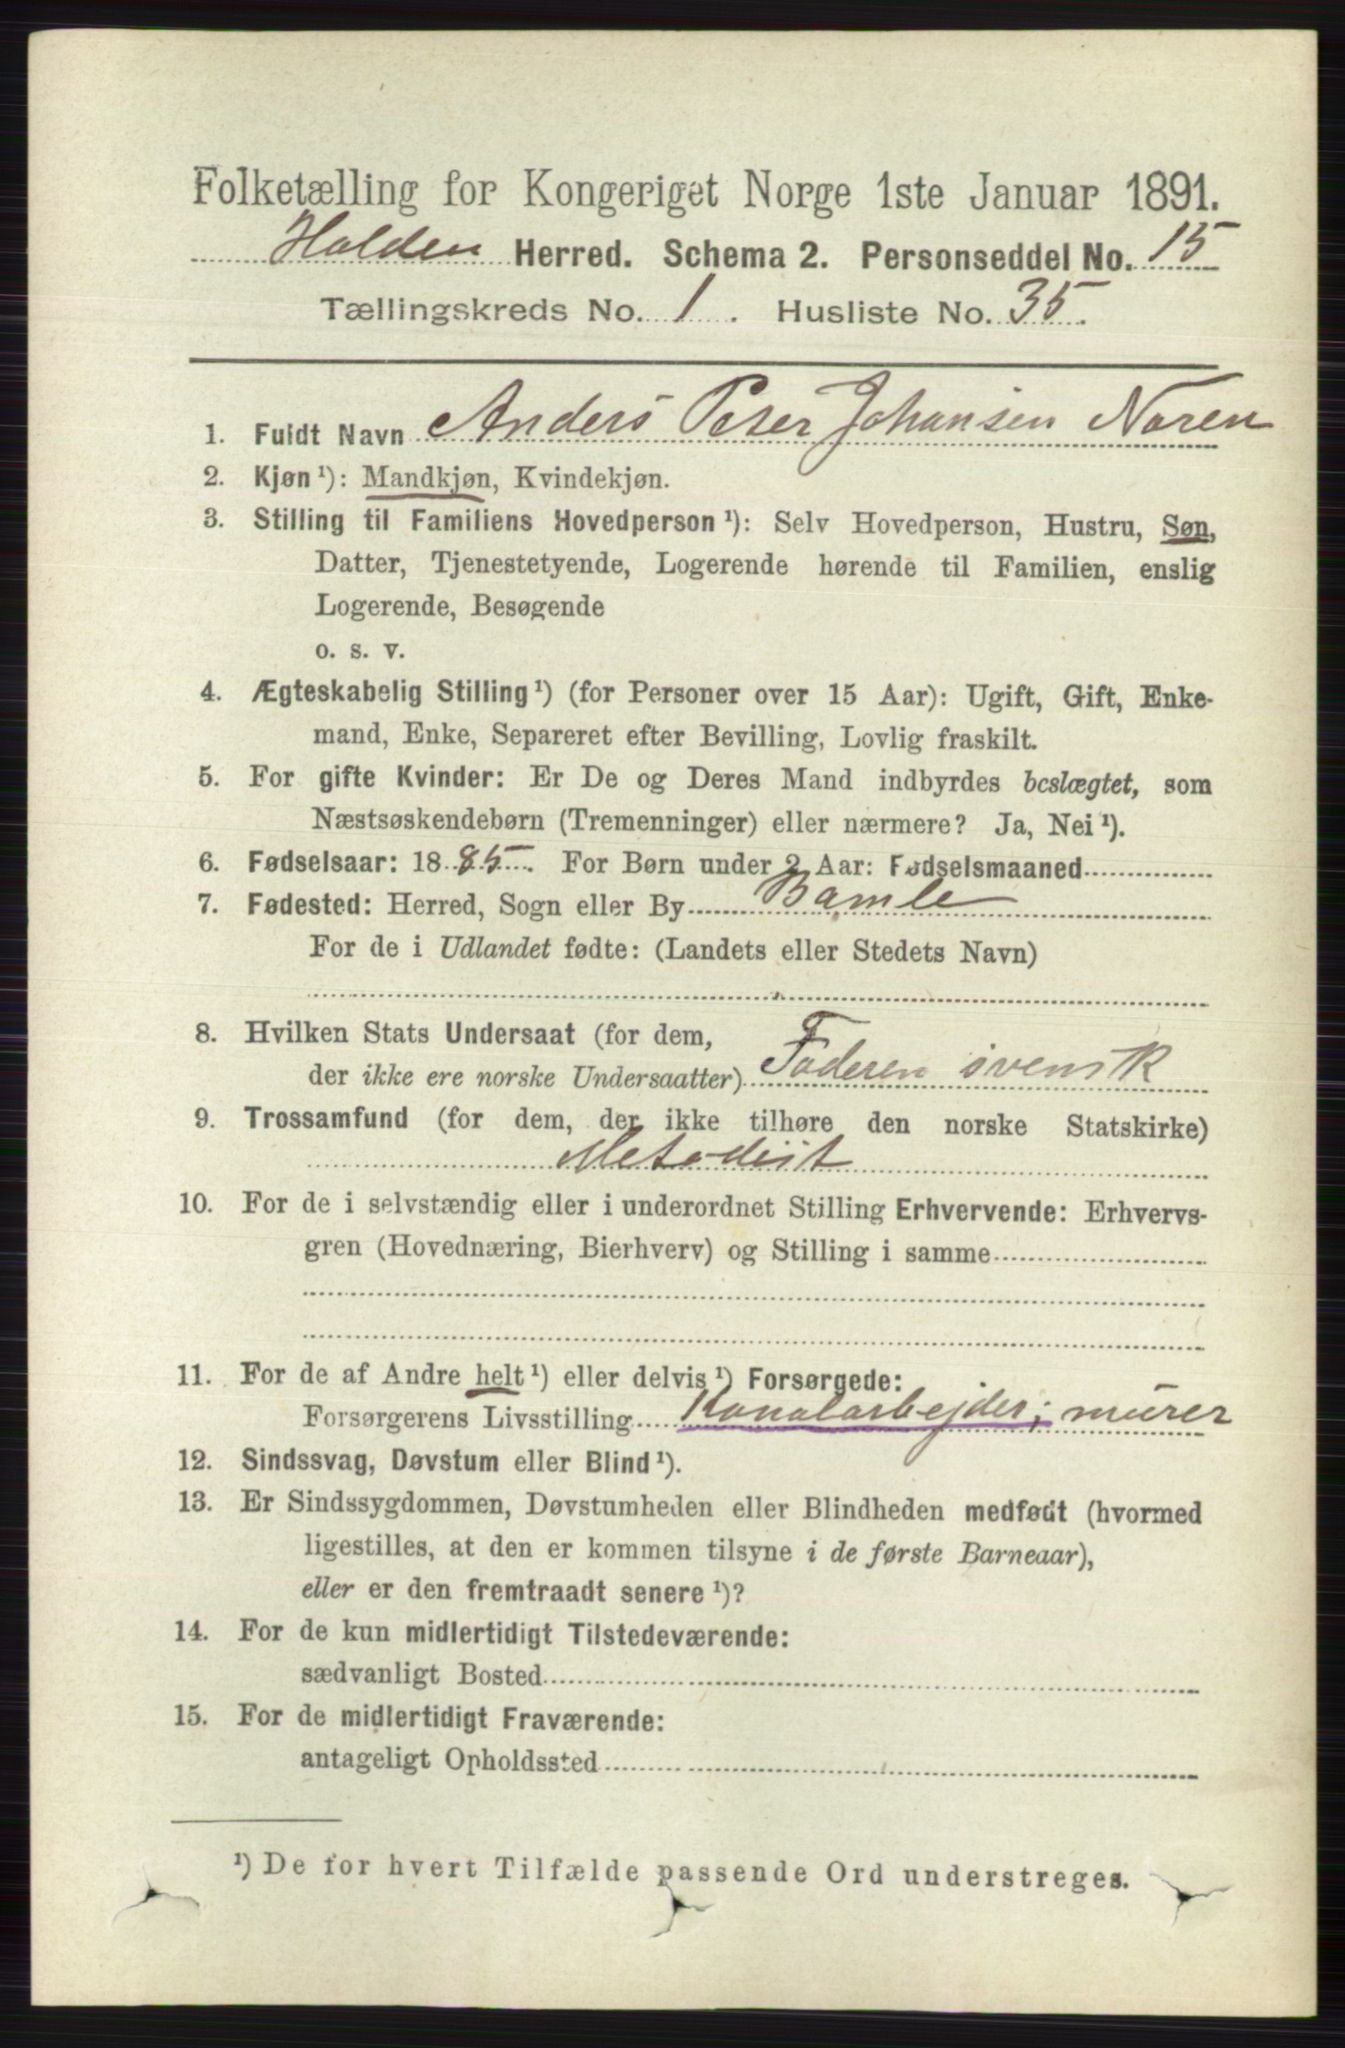 Folketælling for Kongeriget Norge 1ste Januar 1891.
Holden Herred. Schema 2. Personseddel No. 15
Tællingskreds No. 1. Husliste No. 35.
1. Fuldt Navn Anders Peter Johansen Noren
2. Kjøn ¹): Mandkjøn, Kvindekjøn.
3. Stilling til Familiens Hovedperson ¹): Selv Hovedperson, Hustru, Søn,
Datter, Tjenestetyende, Logerende hørende til Familien, enslig
Logerende, Besøgende
o. s. v.
4. Ægteskabelig Stilling ¹) (for Personer over 15 Aar): Ugift, Gift, Enke-
mand, Enke, Separeret efter Bevilling, Lovlig fraskilt.
5. For gifte Kvinder: Er De og Deres Mand indbyrdes beslægtet, som
Næstsøskendebørn (Tremenninger) eller nærmere? Ja, Nei ¹).
6. Fødselsaar: 1885. For Børn under 2 Aar: Fødselsmaaned
7. Fødested: Herred, Sogn eller By Bamle
For de i Udlandet fødte: (Landets eller Stedets Navn)
8. Hvilken Stats Undersaat (for dem,
der ikke ere norske Undersaatter) Faderen svensk
9. Trossamfund (for dem, der ikke tilhøre den norske Statskirke)
Metodist
10. For de i selvstændig eller i underordnet Stilling Erhvervende: Erhvervs-
gren (Hovednæring, Bierhverv) og Stilling i samme
11. For de af Andre helt ¹) eller delvis ¹) Forsørgede:
Forsørgerens Livsstilling Kanalarbejder; murer
12. Sindssvag, Døvstum eller Blind ¹).
13. Er Sindssygdommen, Døvstumheden eller Blindheden medfødt (hvormed
ligestilles, at den er kommen tilsyne i de første Barneaar),
eller er den fremtraadt senere ¹)?
14. For de kun midlertidigt Tilstedeværende:
sædvanligt Bosted
15. For de midlertidigt Fraværende:
antageligt Opholdssted
¹) De for hvert Tilfælde passende Ord understreges.